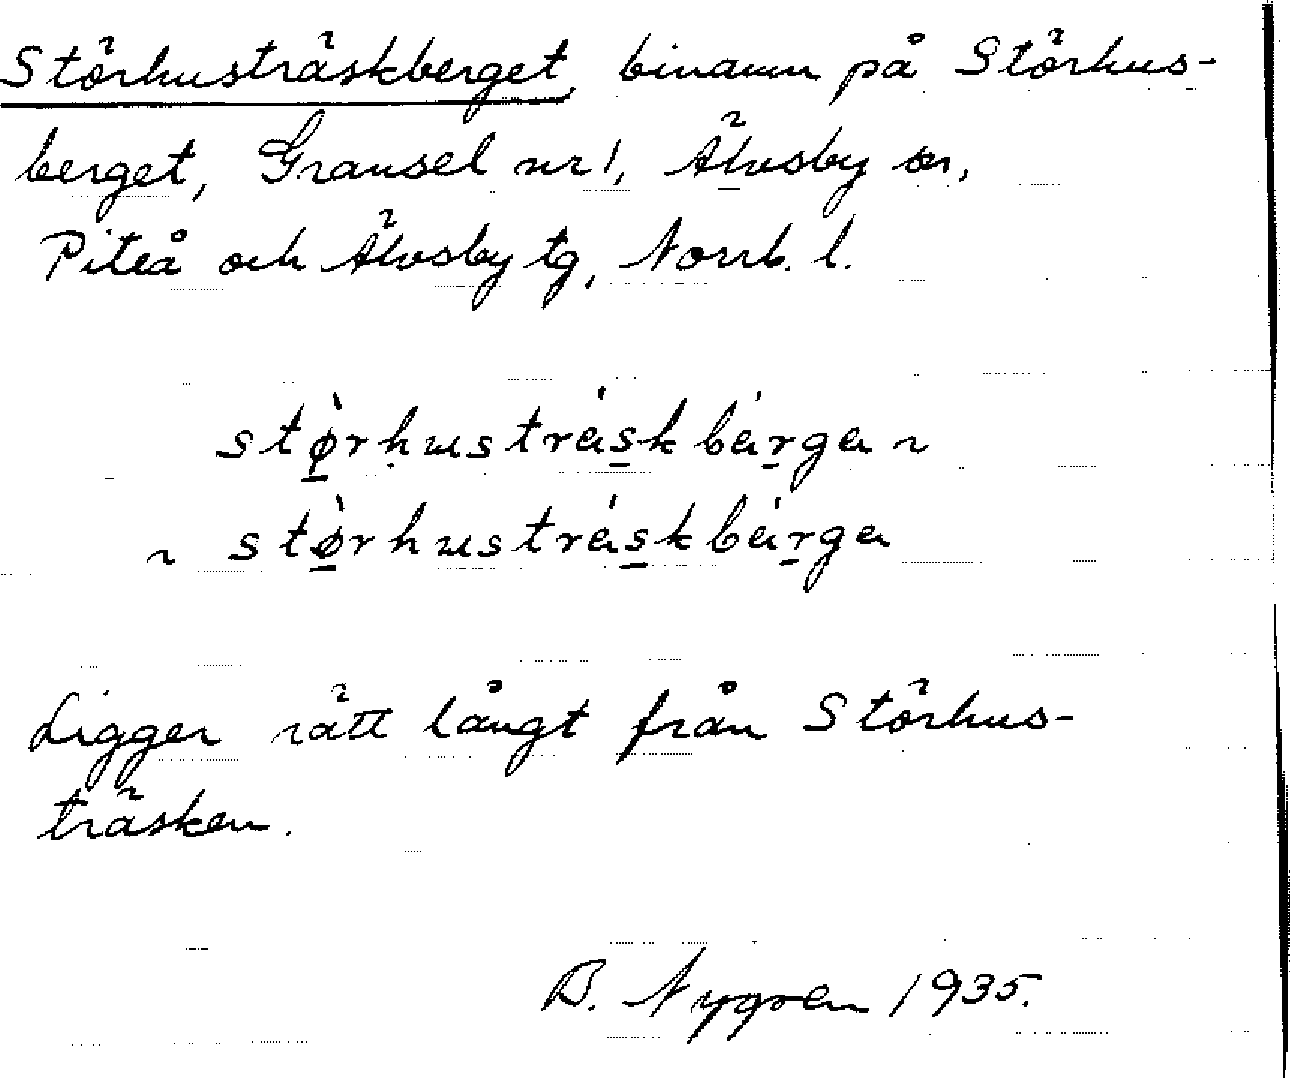 Störhusträskberget, binamn på Störhus-
berget, Gransel nr 1, Älvsby sn,
Piteå och Älvsby tg, Norrb. l.
stø̀rhusträ́skbä́rgen ~
~ stø̀rhusträ́skbä́rge
Ligger rätt långt från Störhus-
träsken.
B. Nygren 1935.